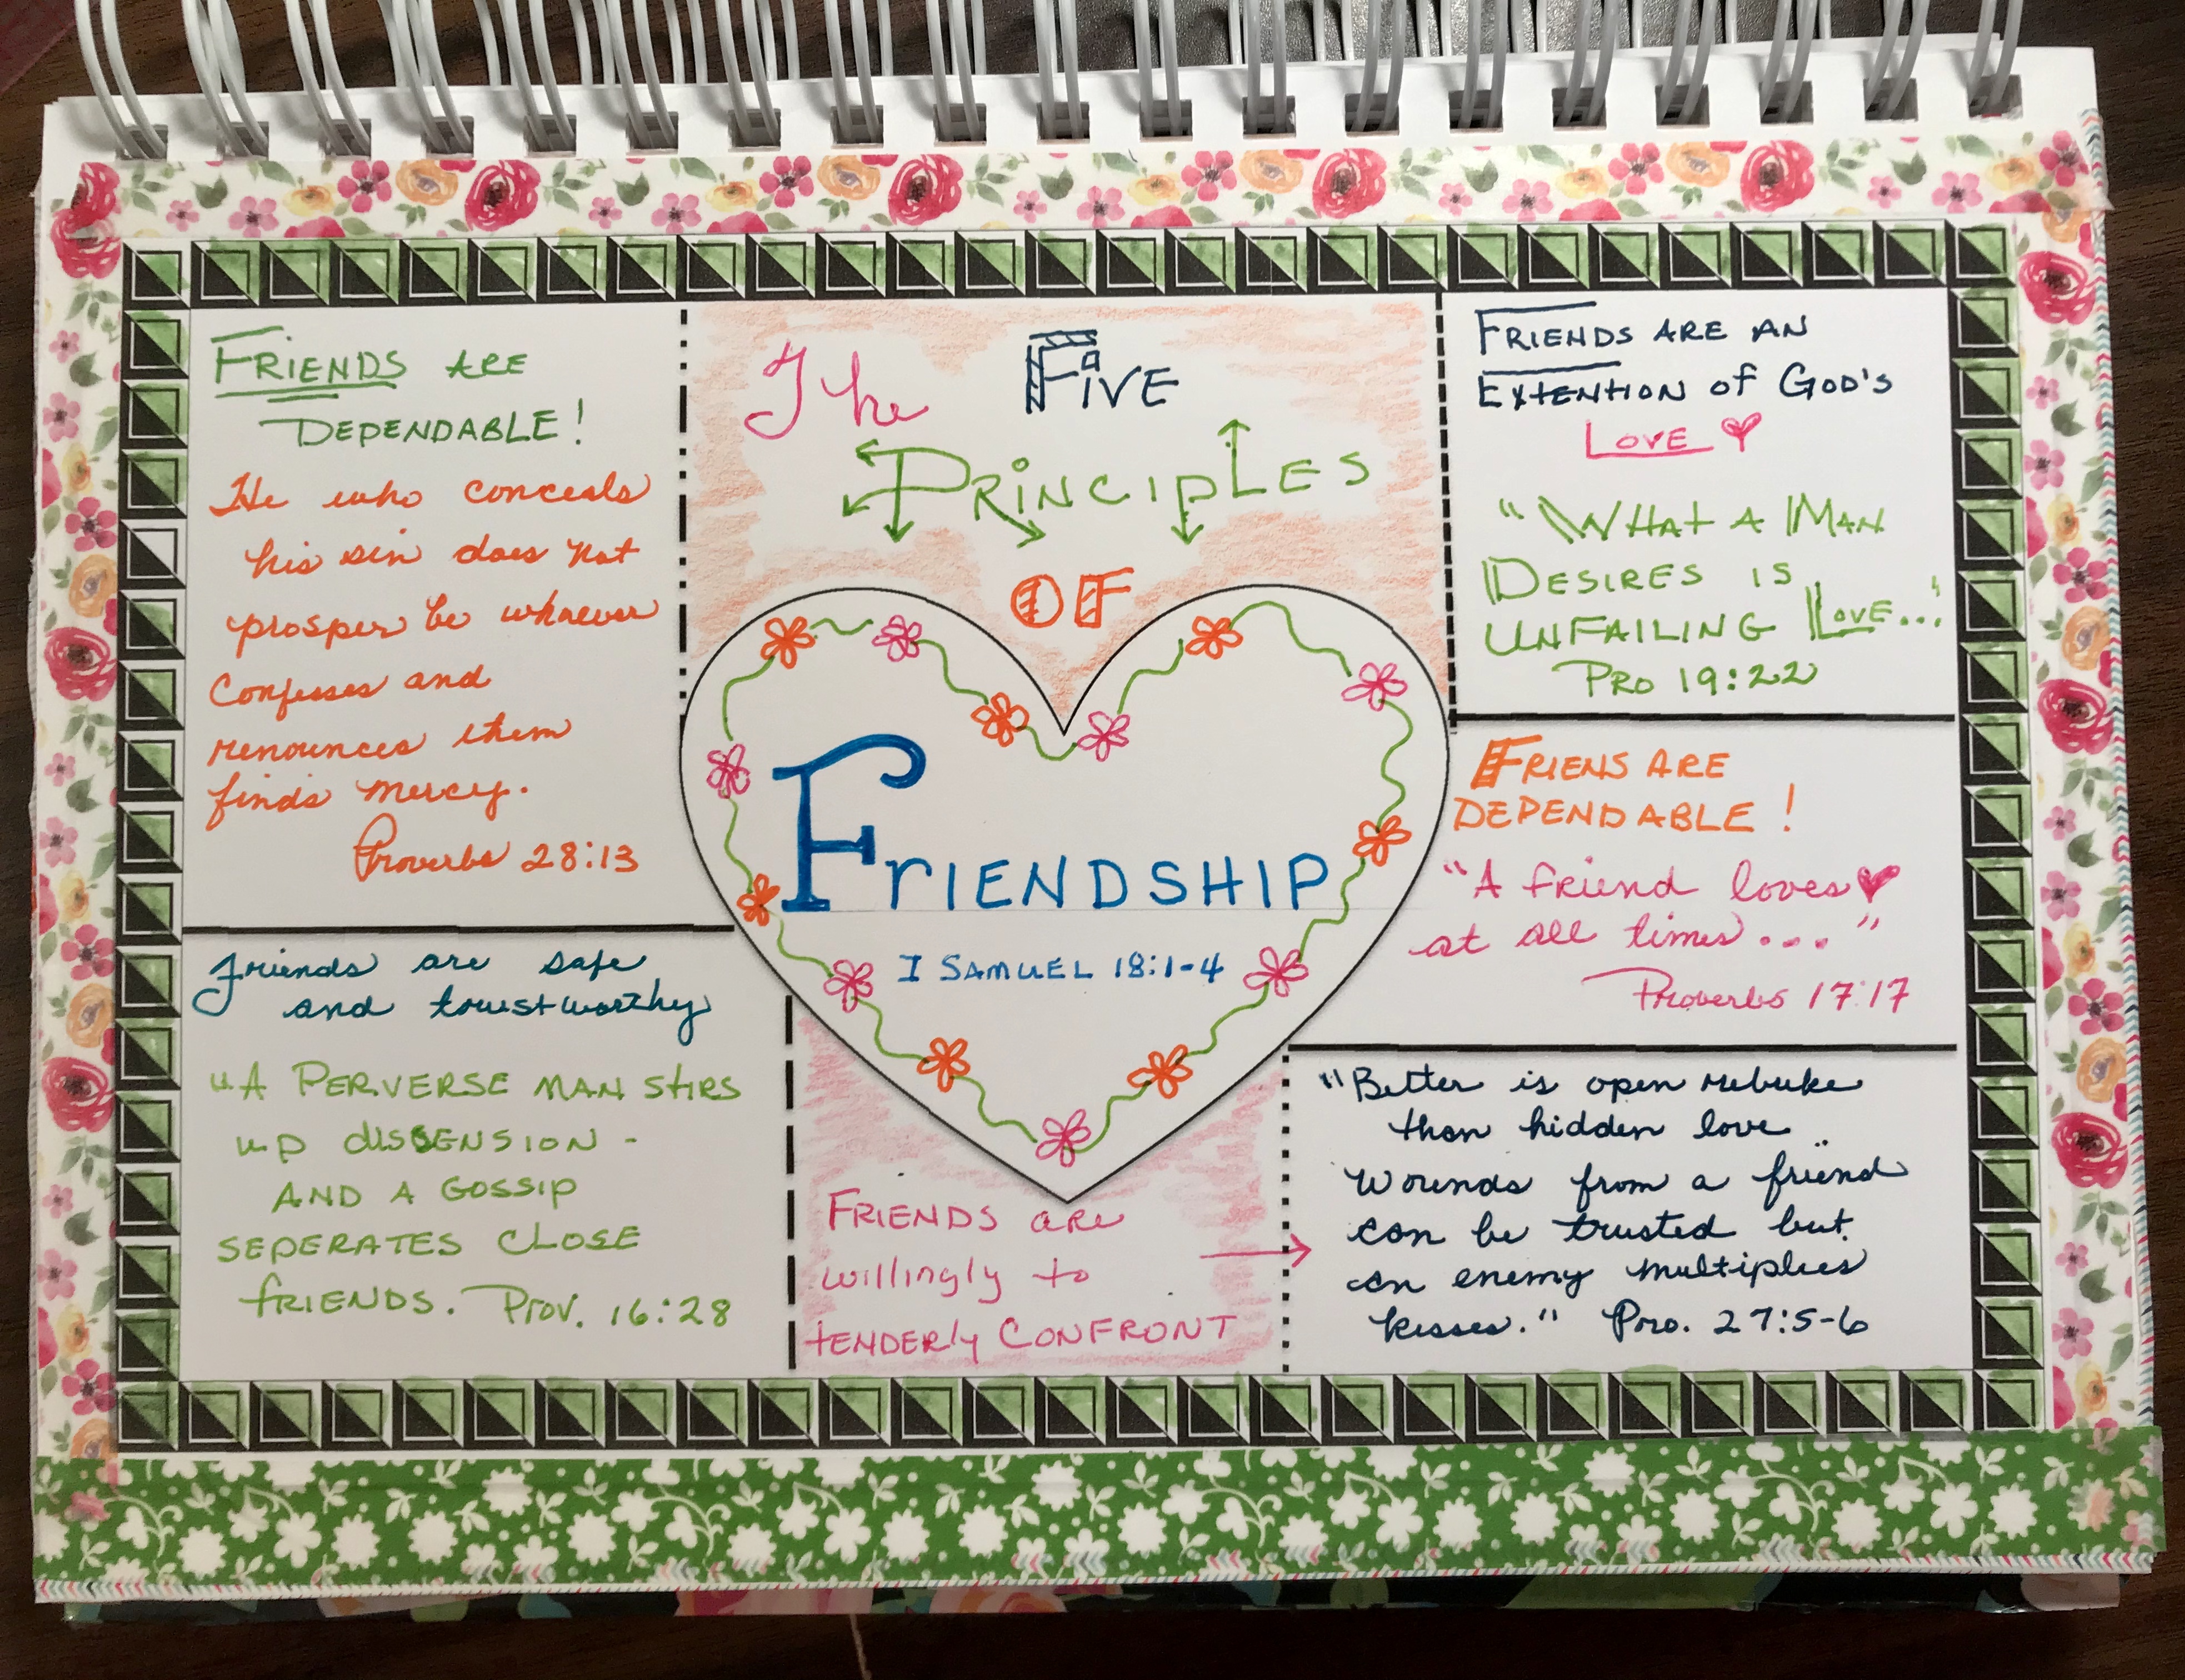 The Five
PRINCIPLES
OF
FRIENDSHIP
I SAMUEL 18:1-4
FRIENDS ARE
DEPENDABLE!
He who conceals
his sin does not
prosper be whoever
Confesses and
renounces them
finds mercy.
Proverbs 28:13
Friends are safe
and trustworthy
"A PERVERSE MAN STIRS
UP DISSENSION -
AND A GOSSIP
SEPERATES CLOSE
FRIENDS. Prov. 16:28
FRIENDS are
willingly to
TENDERLY CONFRONT
FRIENDS ARE AN
EXTENTION OF GOD'S
LOVE
"WHAT A MAN
DESIRES IS
UNFAILING LOVE..."
PRO 19:22
FRIENS ARE
DEPENDABLE!
"A friend loves
at all times...."
Proverbs 17:17
"Better is open rebuke
than hidden love
Wounds from a friend
can be trusted but
an enemy multiplies
kisses." Pro. 27:5-6